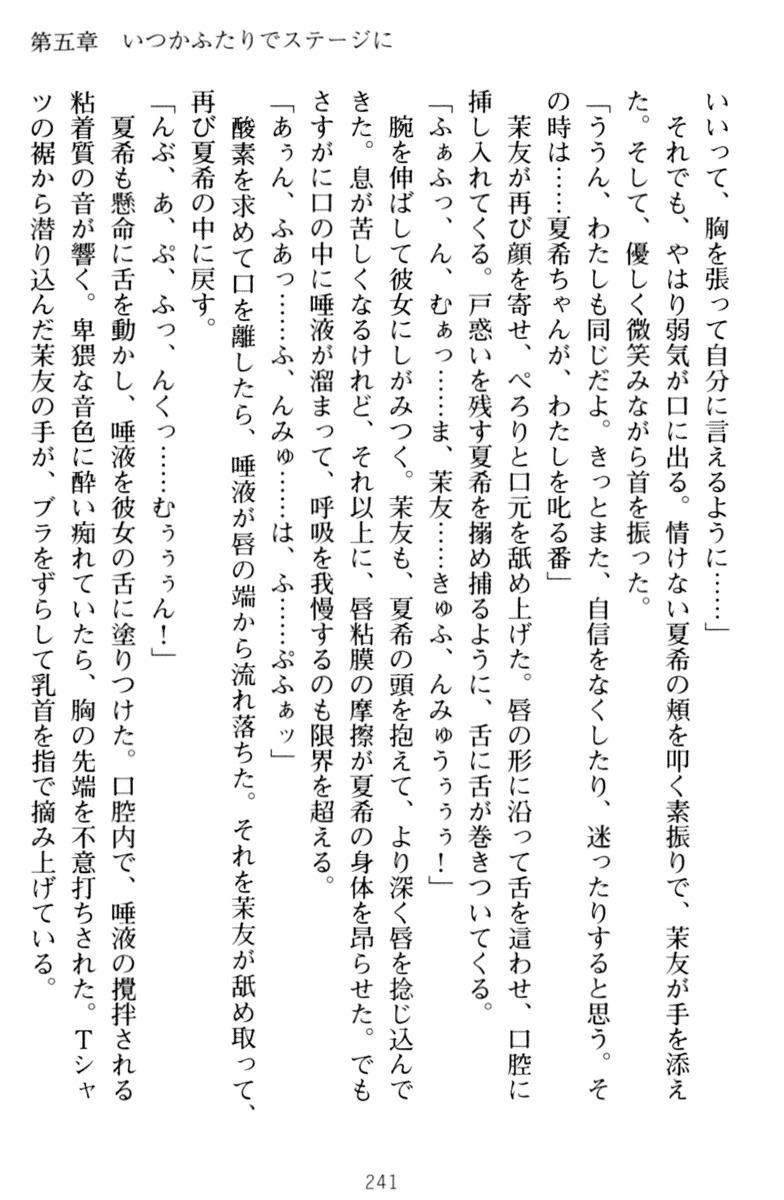 第五章　いつかふたりでステージに
いいって、胸を張って自分に言えるように……」
それでも、やはり弱気が口に出る。情けない夏希の頬を叩く素振りで、茉友が手を添え
た。そして、優しく微笑みながら首を振った。
「ううん、わたしも同じだよ。きっとまた、自信をなくしたり、迷ったりすると思う。そ
の時は……夏希ちゃんが、わたしを叱る番」
茉友が再び顔を寄せ、ぺろりと口元を舐め上げた。唇の形に沿って舌を這わせ、口腔に
挿し入れてくる。戸惑いを残す夏希を搦め捕るように、舌に舌が巻きついてくる。
「ふぁふっ、ん、むぁっ……ま、茉友……きゅふ、んみゅうぅぅぅ！」
腕を伸ばして彼女にしがみつく。茉友も、夏希の頭を抱えて、より深く唇を捻じ込んで
きた。息が苦しくなるけれど、それ以上に、唇粘膜の摩擦が夏希の身体を昂らせた。でも
さすがに口の中に唾液が溜まって、呼吸を我慢するのも限界を超える。
「あぅん、ふあっ……ふ、んみゅ……は、ふ……ぷふぁッ」
酸素を求めて口を離したら、唾液が唇の端から流れ落ちた。それを茉友が舐め取って、
再び夏希の中に戻す。
「んぶ、あ、ぷ、ふっ、んくっ……むぅぅぅん！」
夏希も懸命に舌を動かし、唾液を彼女の舌に塗りつけた。口腔内で、唾液の攪拌される
粘着質の音が響く。卑猥な音色に酔い痴れていたら、胸の先端を不意打ちされた。Ｔシャ
ツの裾から潜り込んだ茉友の手が、ブラをずらして乳首を指で摘み上げている。
241